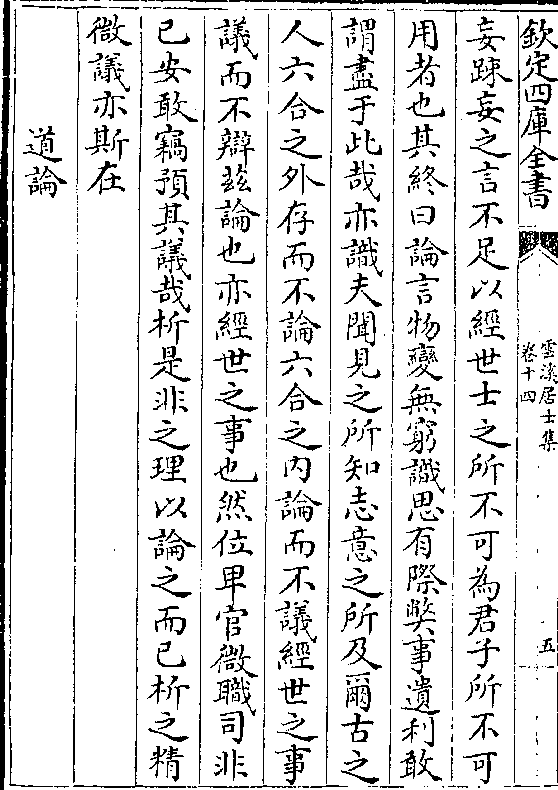 欽定四庫全書
雲溪居士集
卷十四
五
妄踈妄之言不足以經世士之所不可為君子所不可
用者也其終曰論言物變無窮識思有際弊事遺利敢
謂盡于此哉亦識夫聞見之所知志意之所及爾古之
人六合之外存而不論六合之内論而不議經世之事
議而不辯茲論也亦經世之事也然位卑官微職司非
已安敢竊預其議哉析是非之理以論之而已析之精
微議亦斯在
道論